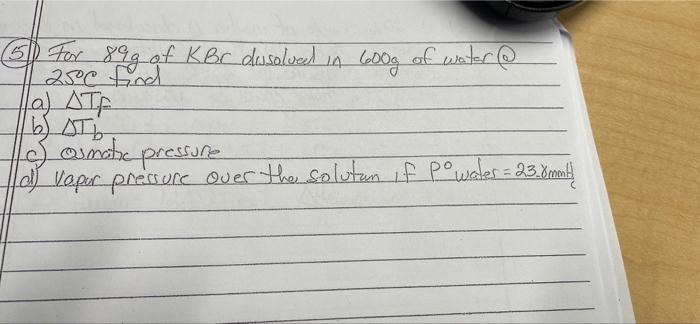 5) For 89g of KBr dissolved in 600g of water @
25°C find
a) ΔTf
b) ΔTb
c) osmotic pressure
d) vapor pressure over the solution if P° water = 23.8mmHg